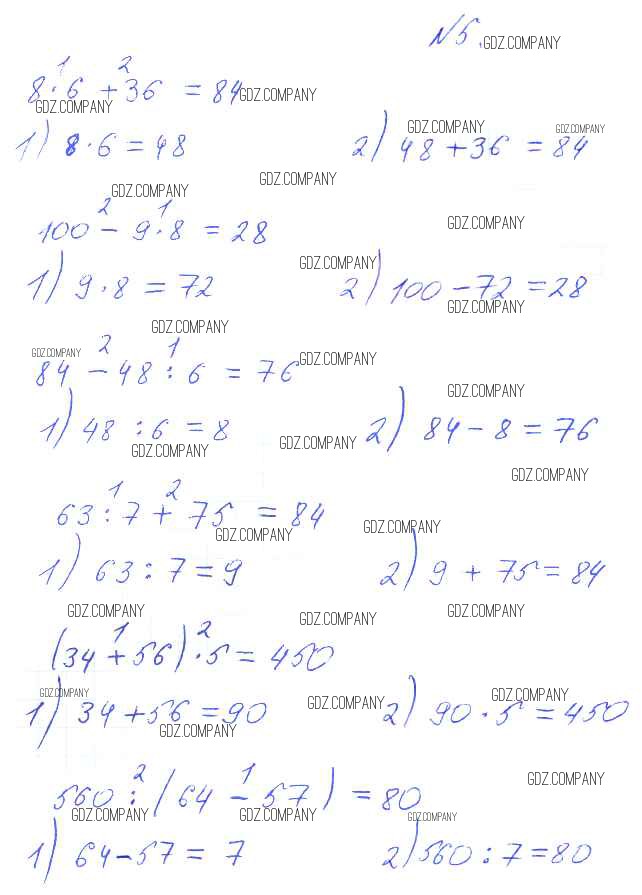 №5.
GDZ.COMPANY
1 2
8·6 + 36 = 84
GDZ.COMPANY GDZ.COMPANY
GDZ.COMPANY GDZ.COMPANY
1) 8·6 = 48 2) 48 + 36 = 84
GDZ.COMPANY GDZ.COMPANY
2 1
100 - 9·8 = 28
GDZ.COMPANY
GDZ.COMPANY
1) 9·8 = 72 2) 100 - 72 = 28
GDZ.COMPANY
GDZ.COMPANY
2 1
GDZ.COMPANY GDZ.COMPANY
84 - 48 : 6 = 76
GDZ.COMPANY
1) 48 : 6 = 8 2) 84 - 8 = 76
GDZ.COMPANY GDZ.COMPANY
GDZ.COMPANY
1 2
63 : 7 + 75 = 84
GDZ.COMPANY GDZ.COMPANY
1) 63 : 7 = 9 2) 9 + 75 = 84
GDZ.COMPANY GDZ.COMPANY GDZ.COMPANY
1 2
(34 + 56)·5 = 450
GDZ.COMPANY GDZ.COMPANY GDZ.COMPANY
1) 34 + 56 = 90 2) 90·5 = 450
GDZ.COMPANY
2 1
GDZ.COMPANY
560 : (64 - 57) = 80
GDZ.COMPANY GDZ.COMPANY GDZ.COMPANY
1) 64 - 57 = 7 2) 560 : 7 = 80